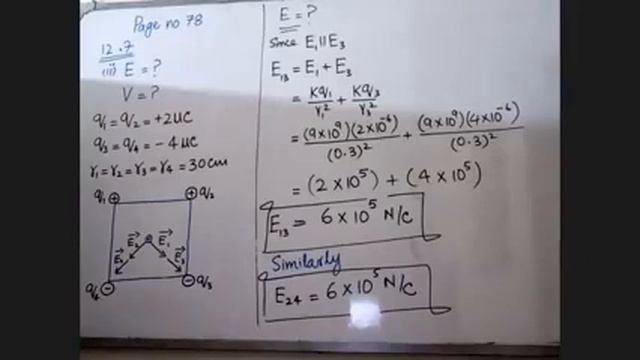 Page no 78
12.7
(ii) E = ?
V = ?
q₁ = q₂ = +2μC
q₃ = q₄ = -4μC
r₁ = r₂ = r₃ = r₄ = 30cm
⊕ q₂
q₁ ⊕
E⃗₂ E⃗₁
E⃗₄ E⃗₃
q₄ ⊖ ⊖ q₃
E = ?
Since E₁ || E₃
E₁₃ = E₁ + E₃
= Kq₁/r₁² + Kq₃/r₃²
= (9×10⁹)(2×10⁻⁶)/(0.3)² + (9×10⁹)(4×10⁻⁶)/(0.3)²
= (2×10⁵) + (4×10⁵)
E₁₃ = 6×10⁵ N/C
Similarly
E₂₄ = 6×10⁵ N/C